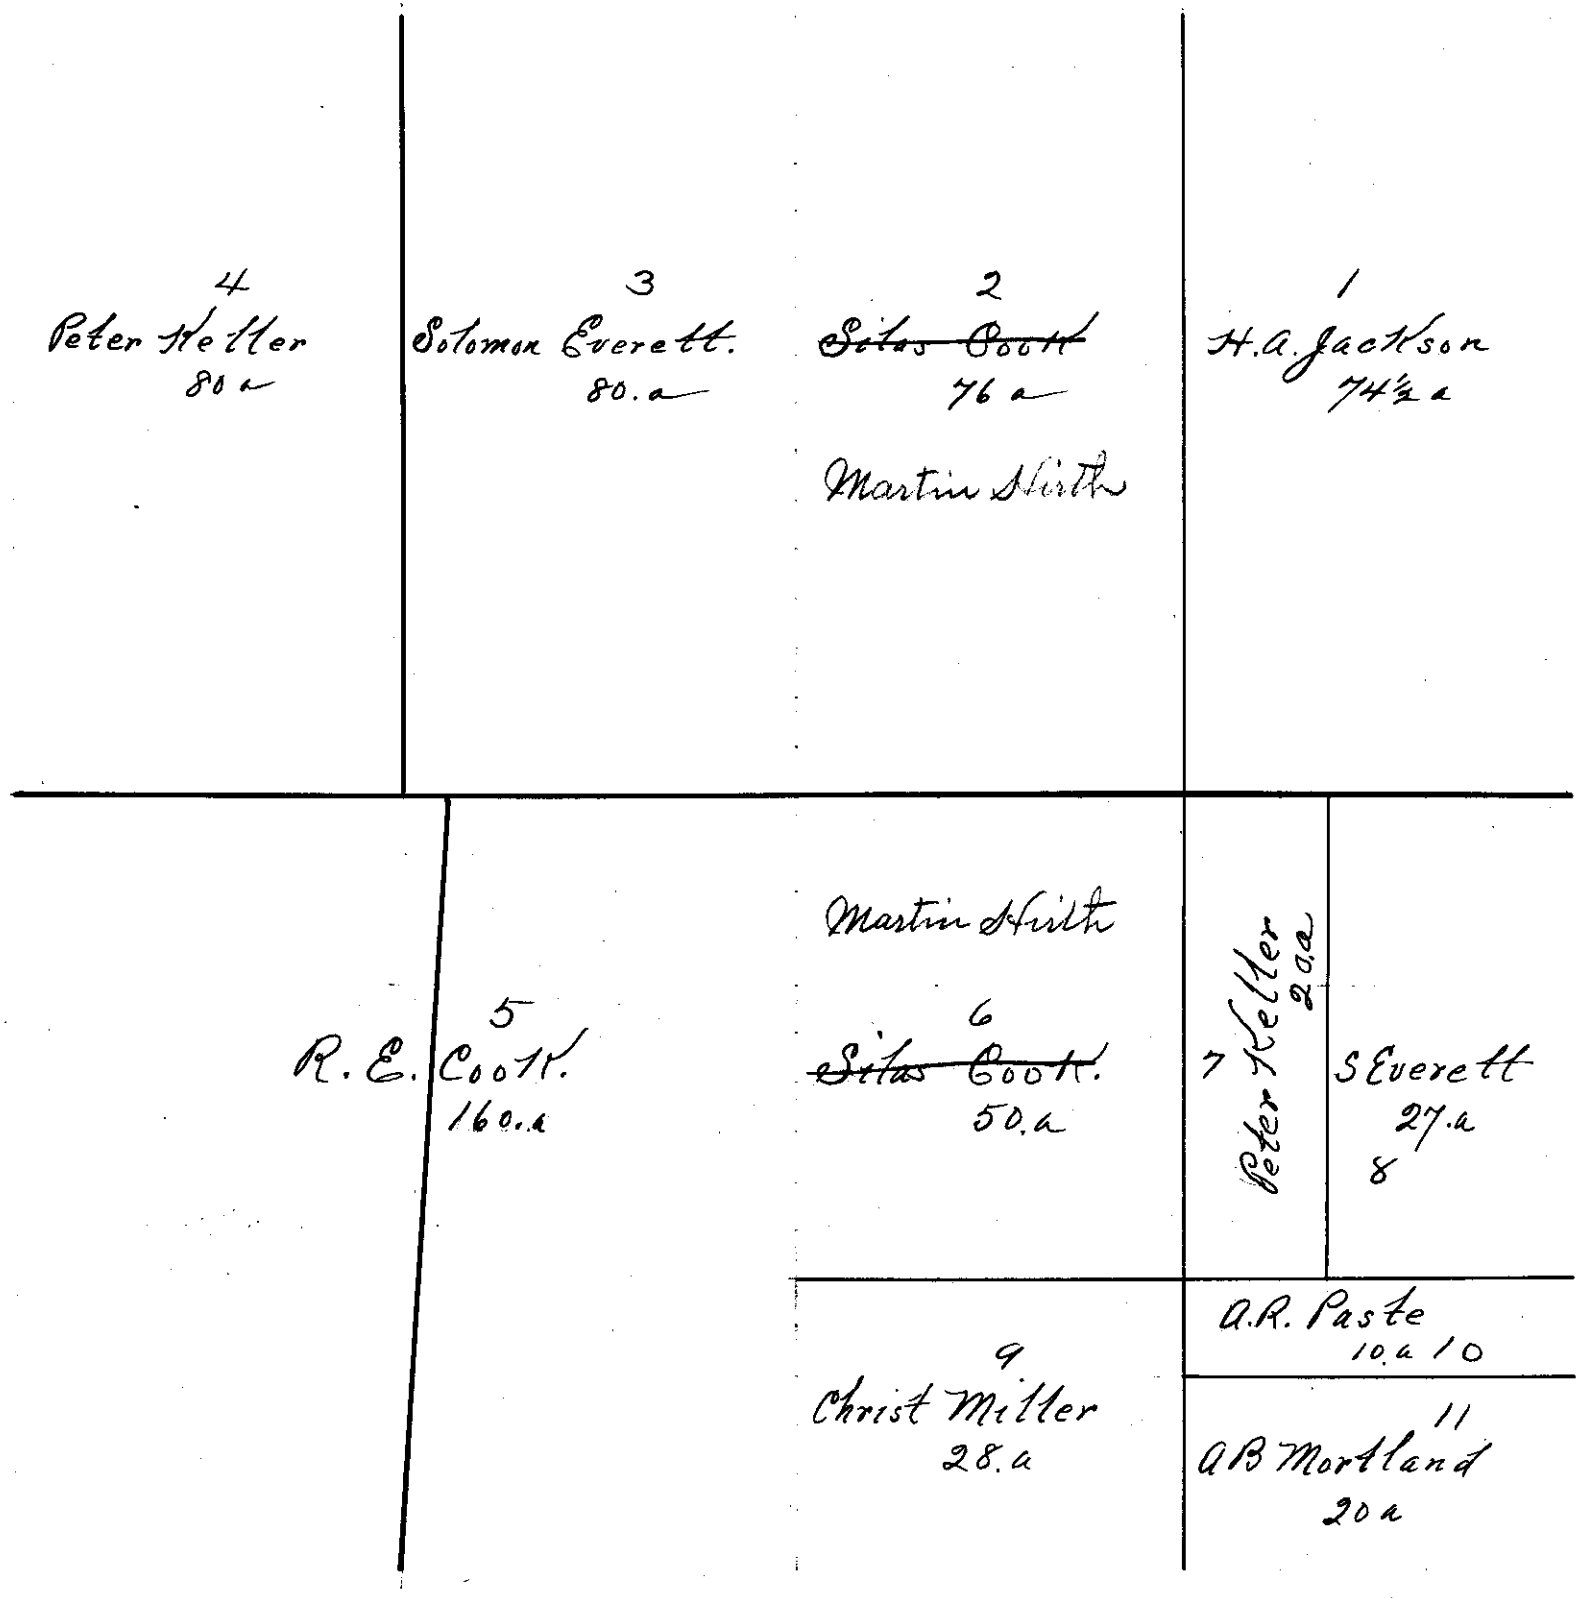 4
Peter Keller
80 a
3
Solomon Everett.
80. a
2
Silas Cook
76 a
Martin Hirth
1
H. A. Jackson
74 1/2 a
5
R. E. Cook.
160. a
Martin Hirth
6
Silas Cook.
50. a
7
Peter Keller
20. a
S Everett
27. a
8
9
Christ Miller
28. a
A. R. Paste
10. a 10
11
A B Mortland
20 a